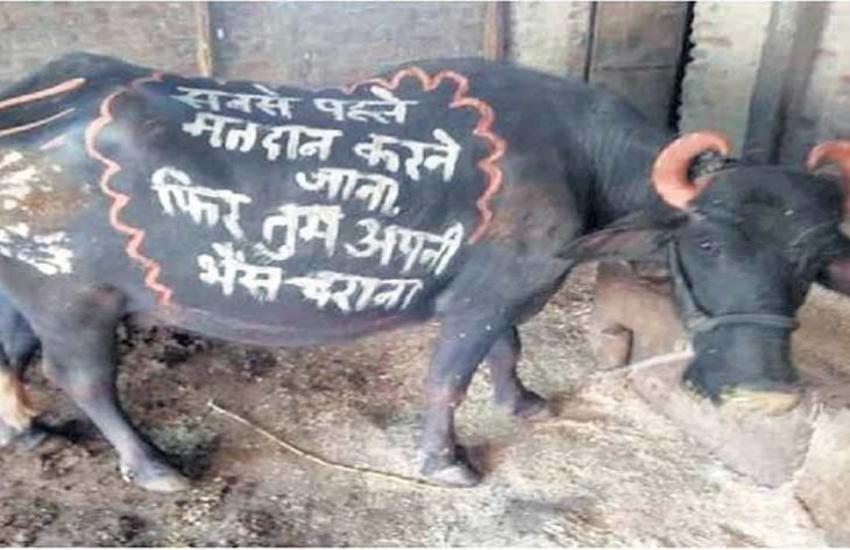 सबसे पहले
मतदान करने
जाना
फिर तुम अपनी
भैंस चराना